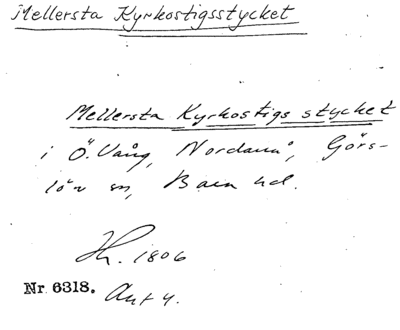 Mellersta Kyrkostigsstycket
Mellersta Kyrkostigs stycket
i Ö. Vång, Nordanå, Görs-
löv sn, Bara hd.
Hh. 1806
Nr. 6318. Akt 4.